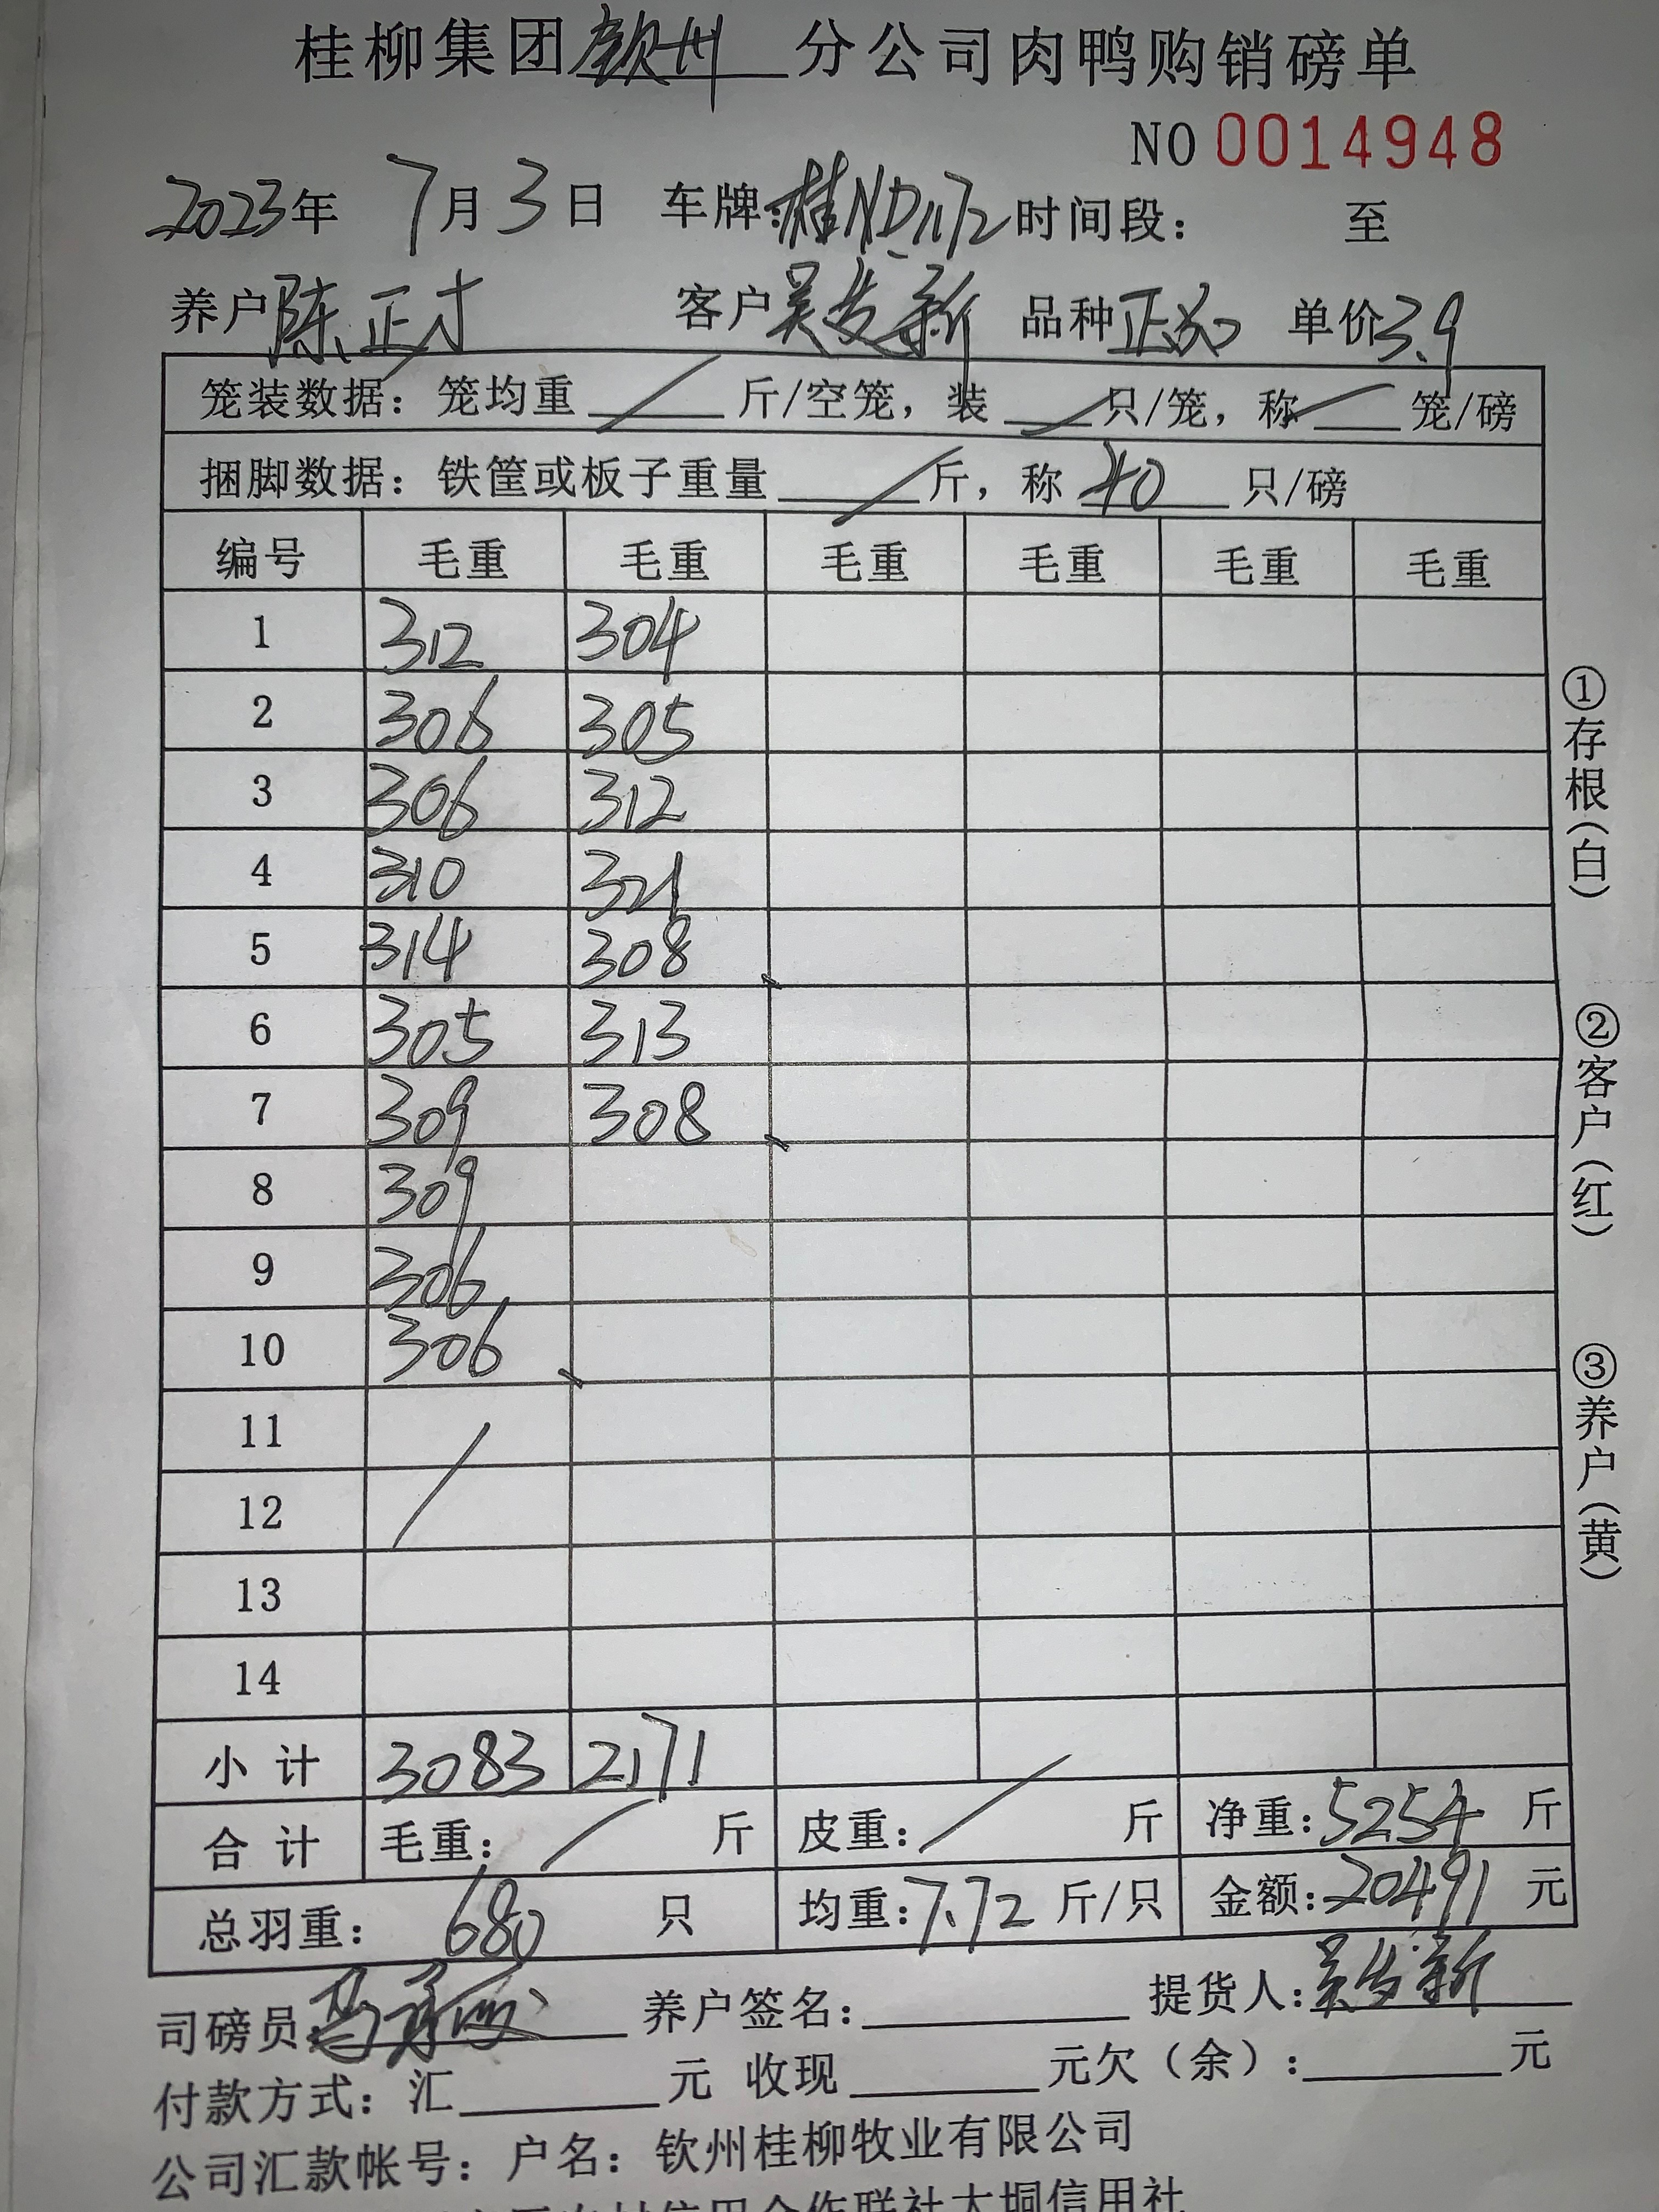 桂柳集团钦州分公司肉鸭购销磅单
NO 0014948
2023年 7月3日 车牌:桂ND1172 时间段: 至
养户陈正才 客户吴发新 品种正 单价3.9
笼装数据:笼均重 / 斤/空笼,装 / 只/笼,称 / 笼/磅
捆脚数据:铁筐或板子重量 / 斤,称 40 只/磅
编号 毛重 毛重 毛重 毛重 毛重 毛重
1 312 304
2 306 305
3 306 312
4 310 321
5 314 308
6 305 313
7 309 308
8 309
9 306
10 306
11 /
12
13
14
小计 3083 2171 /
合计 毛重: / 斤 皮重: / 斤 净重:5254 斤
总羽重: 680 只 均重:7.72 斤/只 金额:20491 元
司磅员 养户签名: 提货人:吴发新
付款方式:汇 元 收现 元欠(余): 元
公司汇款帐号:户名:钦州桂柳牧业有限公司
农村信用合作联社大垌信用社
①存根(白)
②客户(红)
③养户(黄)